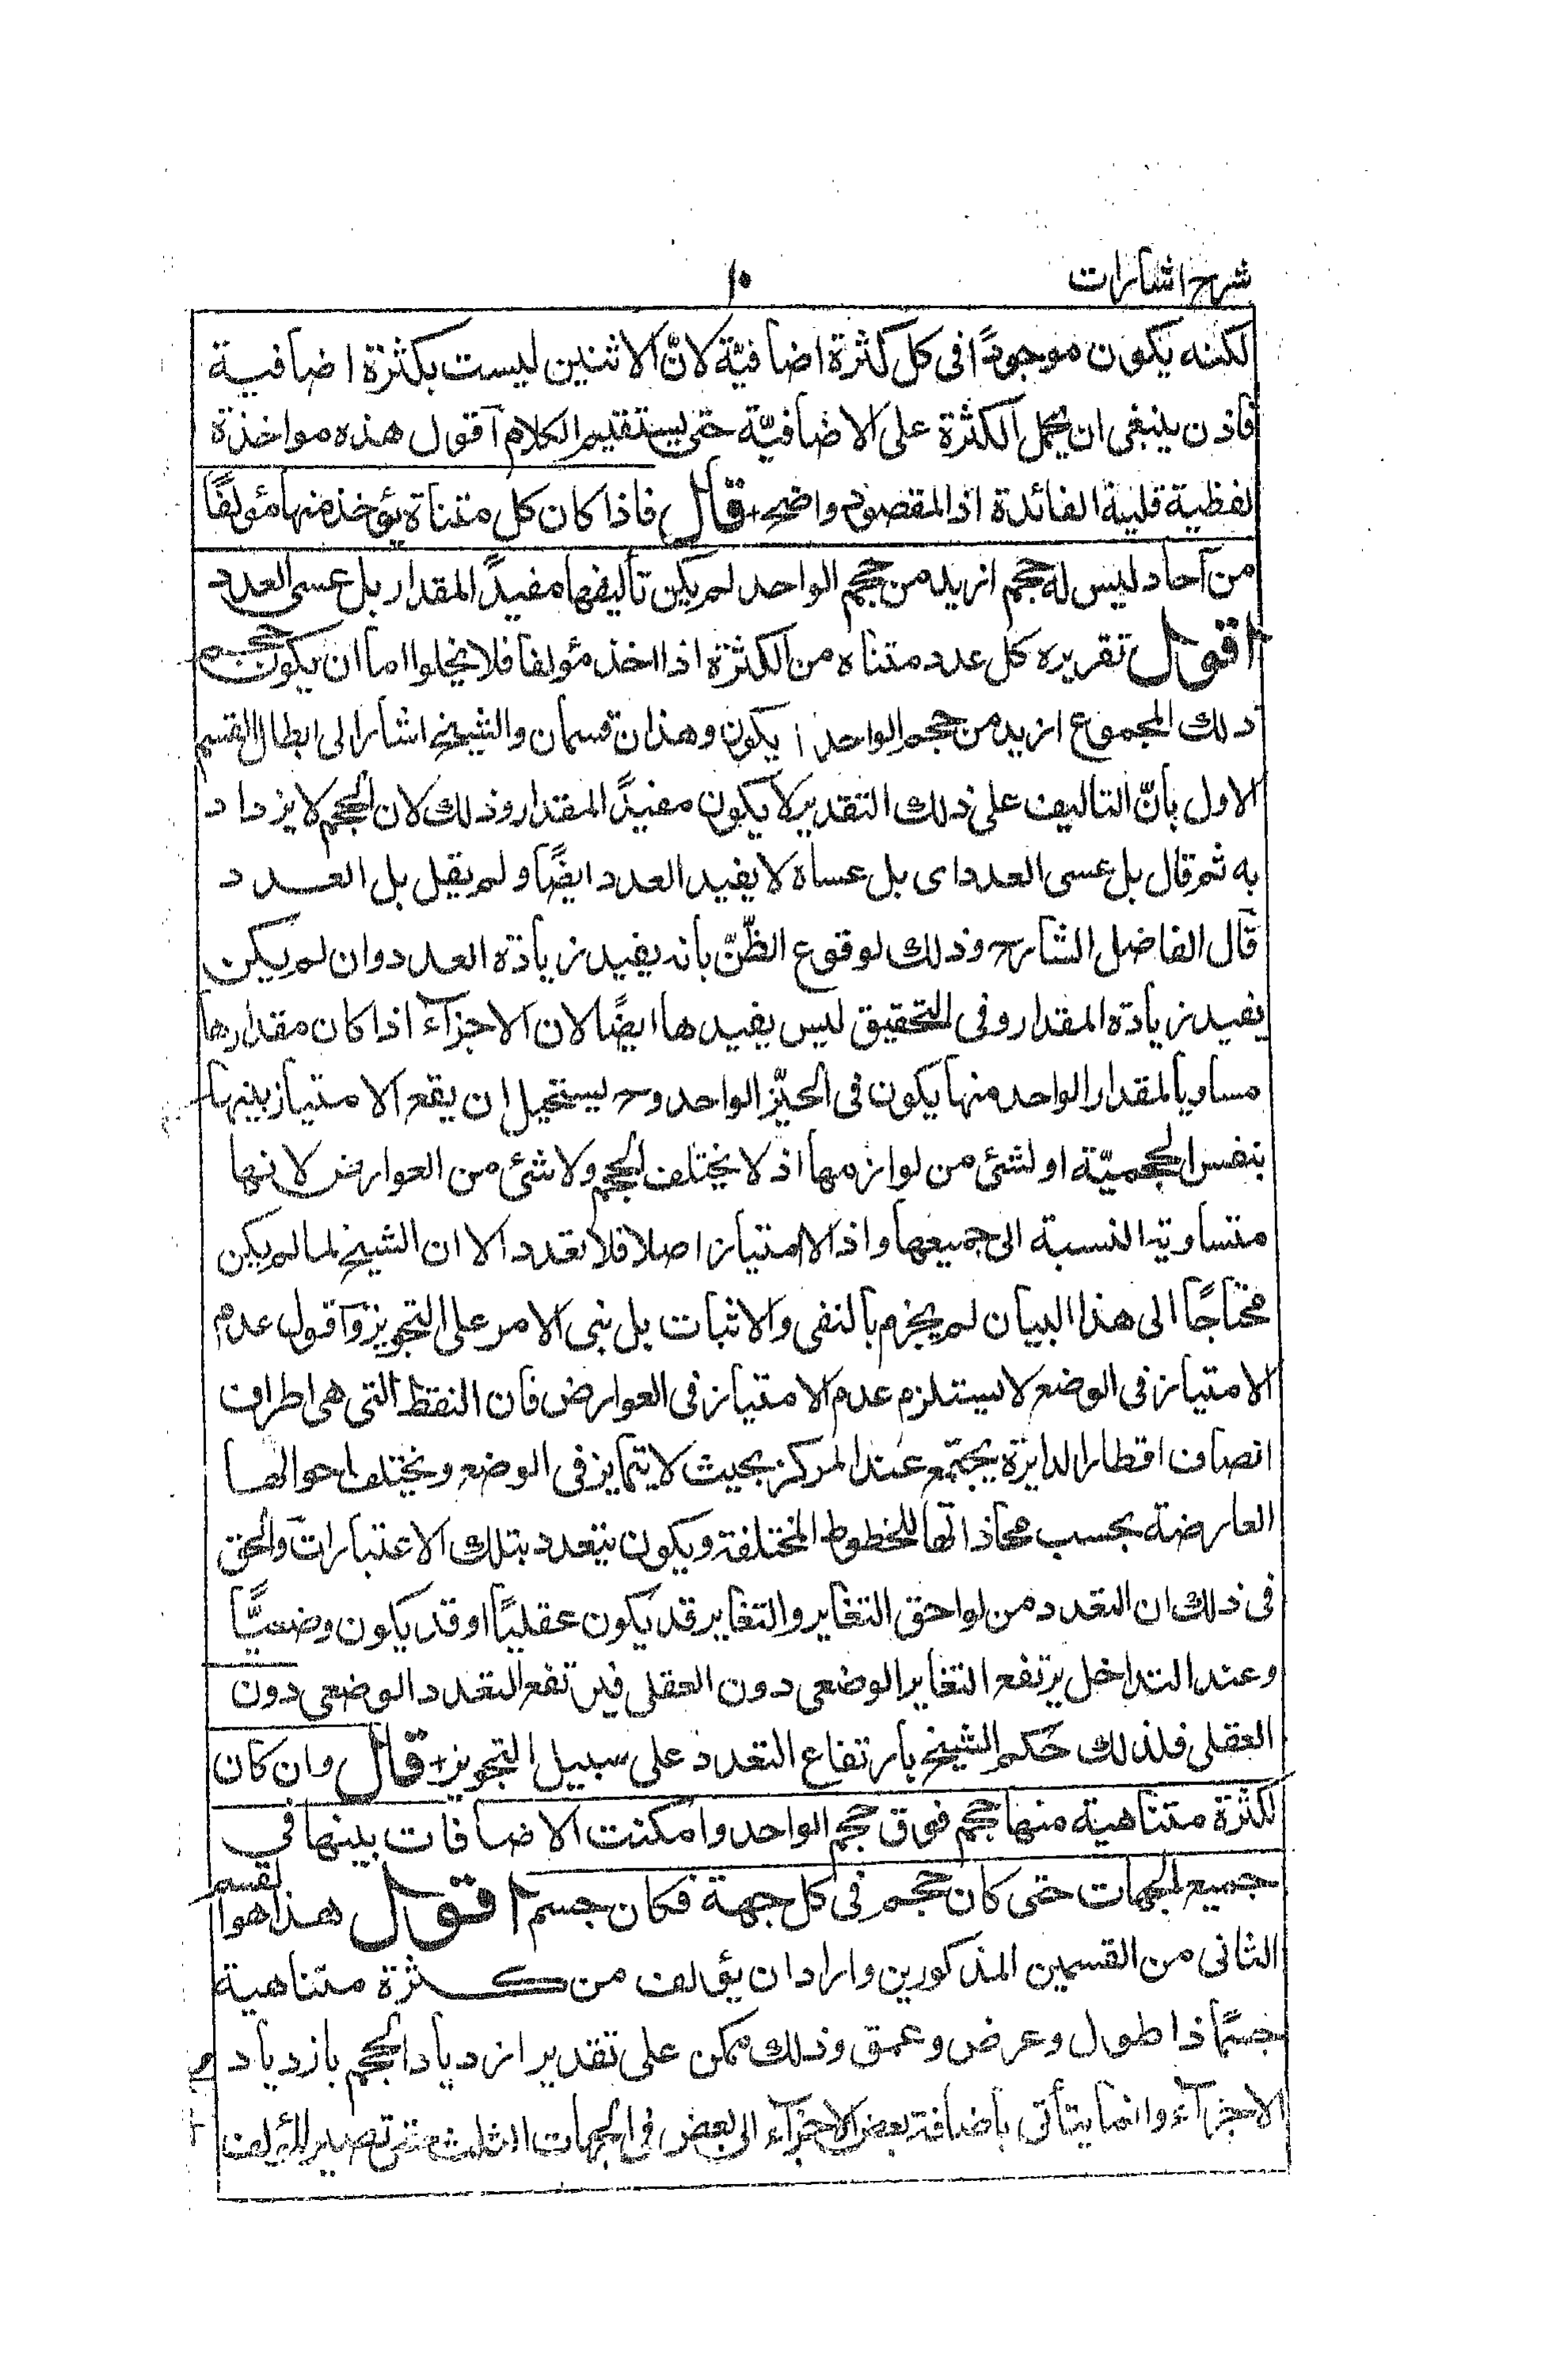 شرح اشارات
١٠
لكنه يكون موجودًا فى كل كثرة اضافيّة لانّ الاثنين ليست بكثرة اضافية
فاذن ينبغى ان يحمل الكثرة على الاضافيّة حتى يستقيم الكلام اقول هذه مواخذة
لفظية قليلة الفائدة اذ المقصود واضح + قال فاذا كان كل متناة يؤخذ منها مؤلفًا
من آحاد ليس له حجم ازيد من حجم الواحد لم يكن تأليفها مفيدًا المقدار بل عسى العدد
اقول تقريره كل عدد متناه من الكثرة اذا اخذ مؤلفا فلا يخلوا اما ان يكون حجم
ذلك المجموع ازيد من حجم الواحد يكون وهذان قسمان والشيخ اشار الى ابطال القسم
الاول بانّ التاليف على ذلك التقدير لا يكون مفيدًا المقدار وذلك لان الحجم لا يزداد
به ثم قال بل عسى العدد اى بل عساه لا يفيد العدد ايضًا ولم يقل بل العدد
قال الفاضل الشارح وذلك لوقوع الظّنّ بانه يفيد زيادة العدد وان لم يكن
يفيد زيادة المقدار وفى التحقيق ليس يفيدها ايضًا لان الاجزآء اذا كان مقدارها
مساويا لمقدار الواحد منها يكون فى الحيّز الواحد وح يستحيل ان يقع الامتياز بينها
بنفس الحجميّة او لشئ من لوازمها اذ لا يختلف الحجم ولا شئ من العوارض لانها
متساوية النسبة الى جميعها واذ لا امتياز اصلا فلا تعدد الا ان الشيخ لما لم يكن
محتاجًا الى هذا البيان لم يجزم بالنفى والاثبات بل بنى الامر على التجويز واقول عدم
الامتياز فى الوضع لا يستلزم عدم الامتياز فى العوارض فان النقط التى هى اطراف
انصاف اقطار الدايرة يجتمع عند المركز بحيث لا يتمايز فى الوضع ويختلف احوالها
العارضة بحسب محاذاتها للخطوط المختلفة ويكون يتعدد بتلك الاعتبارات والحق
فى ذلك ان التعدد من لواحق التغاير والتغاير قد يكون عقليًا وقد يكون وضعيًّا
وعند التداخل يرتفع التغاير الوضعى دون العقلى فيرتفع التعدد الوضعى دون
العقلى فلذلك حكم الشيخ بارتفاع التعدد على سبيل التجويز + قال وان كان
لكثرة متناهية منها حجم فوق حجم الواحد وامكنت الاضافات بينها فى
جميع الجهات حتى كان حجم فى كل جهة فكان جسم اقول هذا هو القسم
الثانى من القسمين المذكورين واراد ان يؤلف من كثرة متناهية
جسمًا ذا طول وعرض وعمق وذلك ممكن على تقدير ازدياد الحجم بازدياد
الاجزآء وانما يتأتى باضافة بعض الاجزآء الى بعض فى الجهات الثلث حتى تصير المؤلف